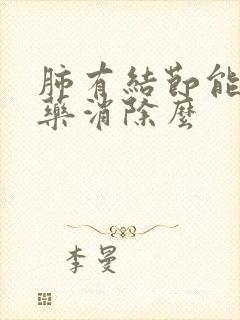 肺有結節能
藥消除麼
李曼